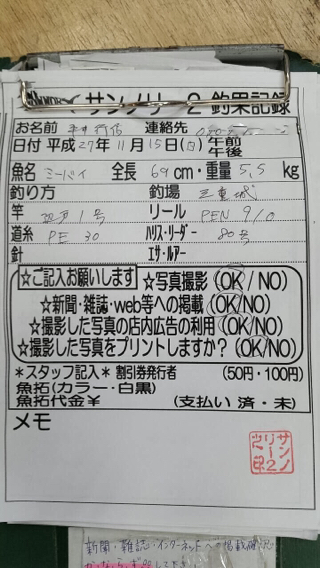 サンノリー2 釣果記録
お名前 連絡先
日付 平成27年11月15日(日) 午前
午後
魚名 ミーバイ 全長 69cm・重量 5,5 kg
釣り方 釣場 三重城
竿 1号 リール PEN 9/0
道糸 PE 30 ハリス・リーダー 80号
針 エサ・ルアー
☆ご記入お願いします ☆写真撮影 (OK/NO)
☆新聞・雑誌・web等への掲載(OK/NO)
☆撮影した写真の店内広告の利用(OK/NO)
☆撮影した写真をプリントしますか?(OK/NO)
*スタッフ記入* 割引券発行者 (50円・100円)
魚拓(カラー・白黒)
魚拓代金¥ (支払い 済・未)
メモ
サンノリー2之印
新聞・雑誌・インターネットへの掲載確認